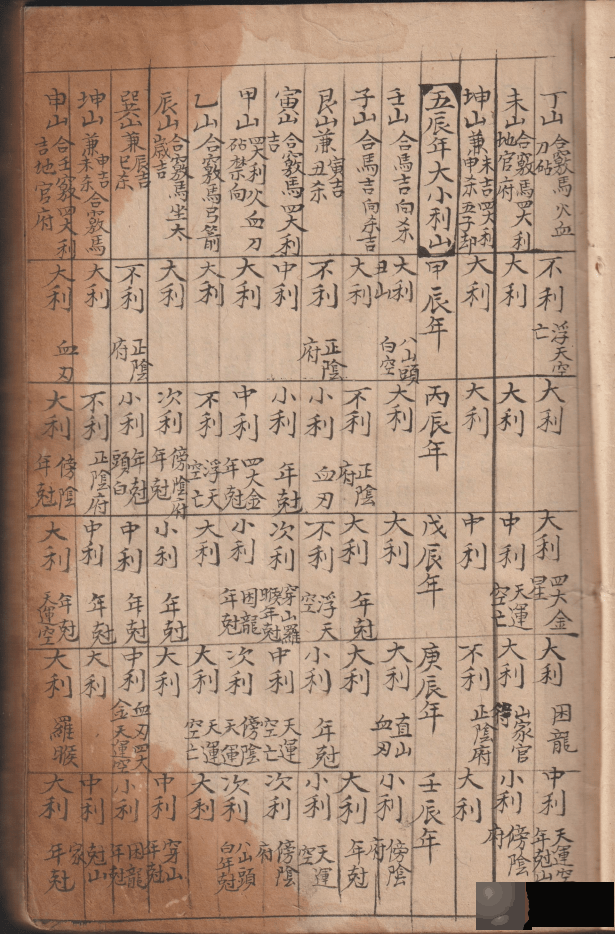 丁山 合竅馬火血刃砧 不利 浮天空亡 大利 大利 四大金星 大利 困龍 中利 天運空年尅山
未山 合竅馬四大利地官府 大利 大利 中利 天運空亡 大利 山家官符 小利 傍陰府
坤山 兼未吉四大利申杀五子却 大利 大利 中利 不利 正陰府 大利
五辰年大小利山 甲辰年 丙辰年 戊辰年 庚辰年 壬辰年
壬山 合馬吉向杀 大利丑山 八山頭白空 大利 大利 大利 直山血刃 小利 傍陰府
子山 合馬吉向杀吉 大利 不利 正陰府 大利 年尅 大利 大利 年尅
艮山 兼寅吉丑杀 不利 正陰府 小利 血刃 不利 浮天空 小利 年尅 小利 天運空
寅山 合竅馬四大利吉 中利 小利 年尅 次利 穿山羅睺年尅 中利 天運空亡 次利 傍陰府
甲山 四大利火血刃砧禁向 大利 中利 四大金年尅 小利 困龍年尅 次利 傍陰天運 次利 八山頭白年尅
乙山 合竅馬弓箭 大利 不利 浮天空亡 大利 大利 天運空亡 大利
辰山 合竅馬坐太歲吉 大利 次利 傍陰府年尅 小利 年尅 大利 中利 穿山年尅
巽山 兼辰吉巳杀 不利 正陰府 小利 年尅頭白 中利 年尅 中利 血刃四大金天運空 小利 困龍年尅
坤山 兼申吉未杀合竅馬 大利 不利 正陰府 中利 年尅 大利 中利 尅山家
申山 合壬竅四大利吉地官府 大利 血刃 大利 傍陰年尅 大利 年尅天運空 大利 羅睺 大利 年尅